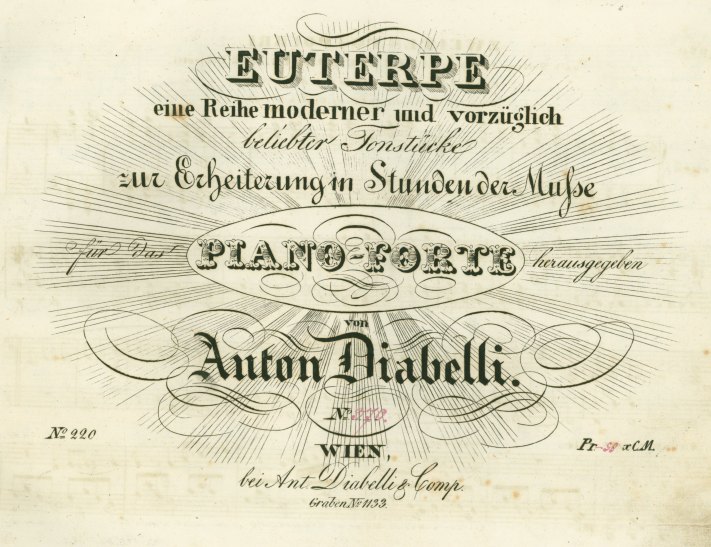 EUTERPE
eine Reihe moderner und vorzüglich
beliebter Tonstücke
zur Erheiterung in Stunden der Muſse
für das PIANO-FORTE herausgegeben
von
Anton Diabelli.
No
No 220
Pr. x C.M.
WIEN,
bei Ant. Diabelli & Comp.
Graben No 1133.